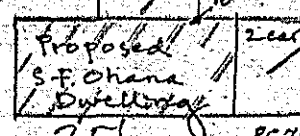 Proposed
S.F. Ohana
Dwelling
2 car